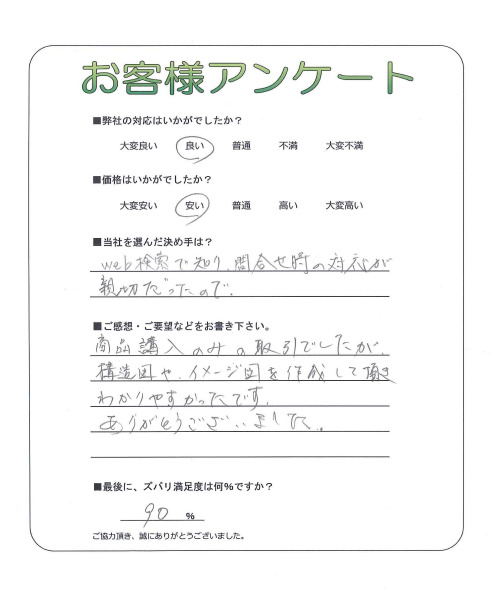 お客様アンケート
■弊社の対応はいかがでしたか？
大変良い 良い 普通 不満 大変不満
■価格はいかがでしたか？
大変安い 安い 普通 高い 大変高い
■当社を選んだ決め手は？
web検索で知り、問合せ時の対応が
親切だったので。
■ご感想・ご要望などをお書き下さい。
商品購入のみの取引でしたが、
構造図や、イメージ図を作成して頂き
わかりやすかったです。
ありがとうございました。
■最後に、ズバリ満足度は何%ですか？
90 %
ご協力頂き、誠にありがとうございました。